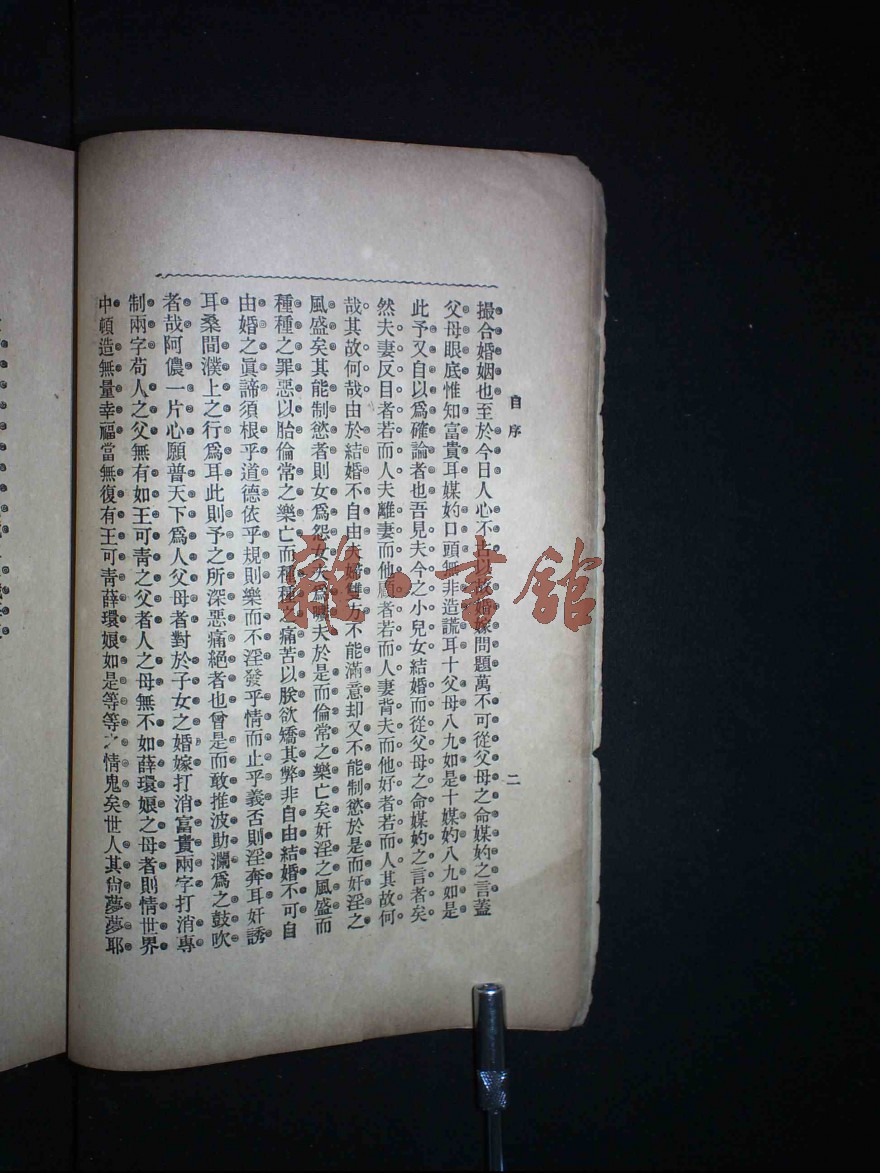 自序
二
撮合婚姻也至於今日人心不古以故婚嫁問題萬不可從父母之命媒妁之言蓋
父母眼底惟知富貴耳媒妁口頭無非造謊耳十父母八九如是十媒妁八九如是
此予又自以爲確論者也吾見夫今之小兒女結婚而從父母之命媒妁之言者矣
然夫妻反目者若而人夫離妻而他顧者若而人妻背夫而他好者若而人其故何
哉其故何哉由於結婚不自由夫婦雙方不能滿意却又不能制慾於是而奸淫之
風盛矣其能制慾者則女爲怨女夫爲曠夫於是而倫常之樂亡矣奸淫之風盛而
種種之罪惡以胎倫常之樂亡而種種之痛苦以朕欲矯其弊非自由結婚不可自
由婚之眞諦須根乎道德依乎規則樂而不淫發乎情而止乎義否則淫奔耳奸誘
耳桑間濮上之行爲耳此則予之所深惡痛絕者也曾是而敢推波助瀾爲之鼓吹
者哉阿儂一片心願普天下爲人父母者對於子女之婚嫁打消富貴兩字打消專
制兩字苟人之父無有如王可靑之父者人之母無不如薛環娘之母者則情世界
中頓造無量幸福當無復有王可靑薛環娘如是等等之情鬼矣世人其尙夢夢耶
雜·書館